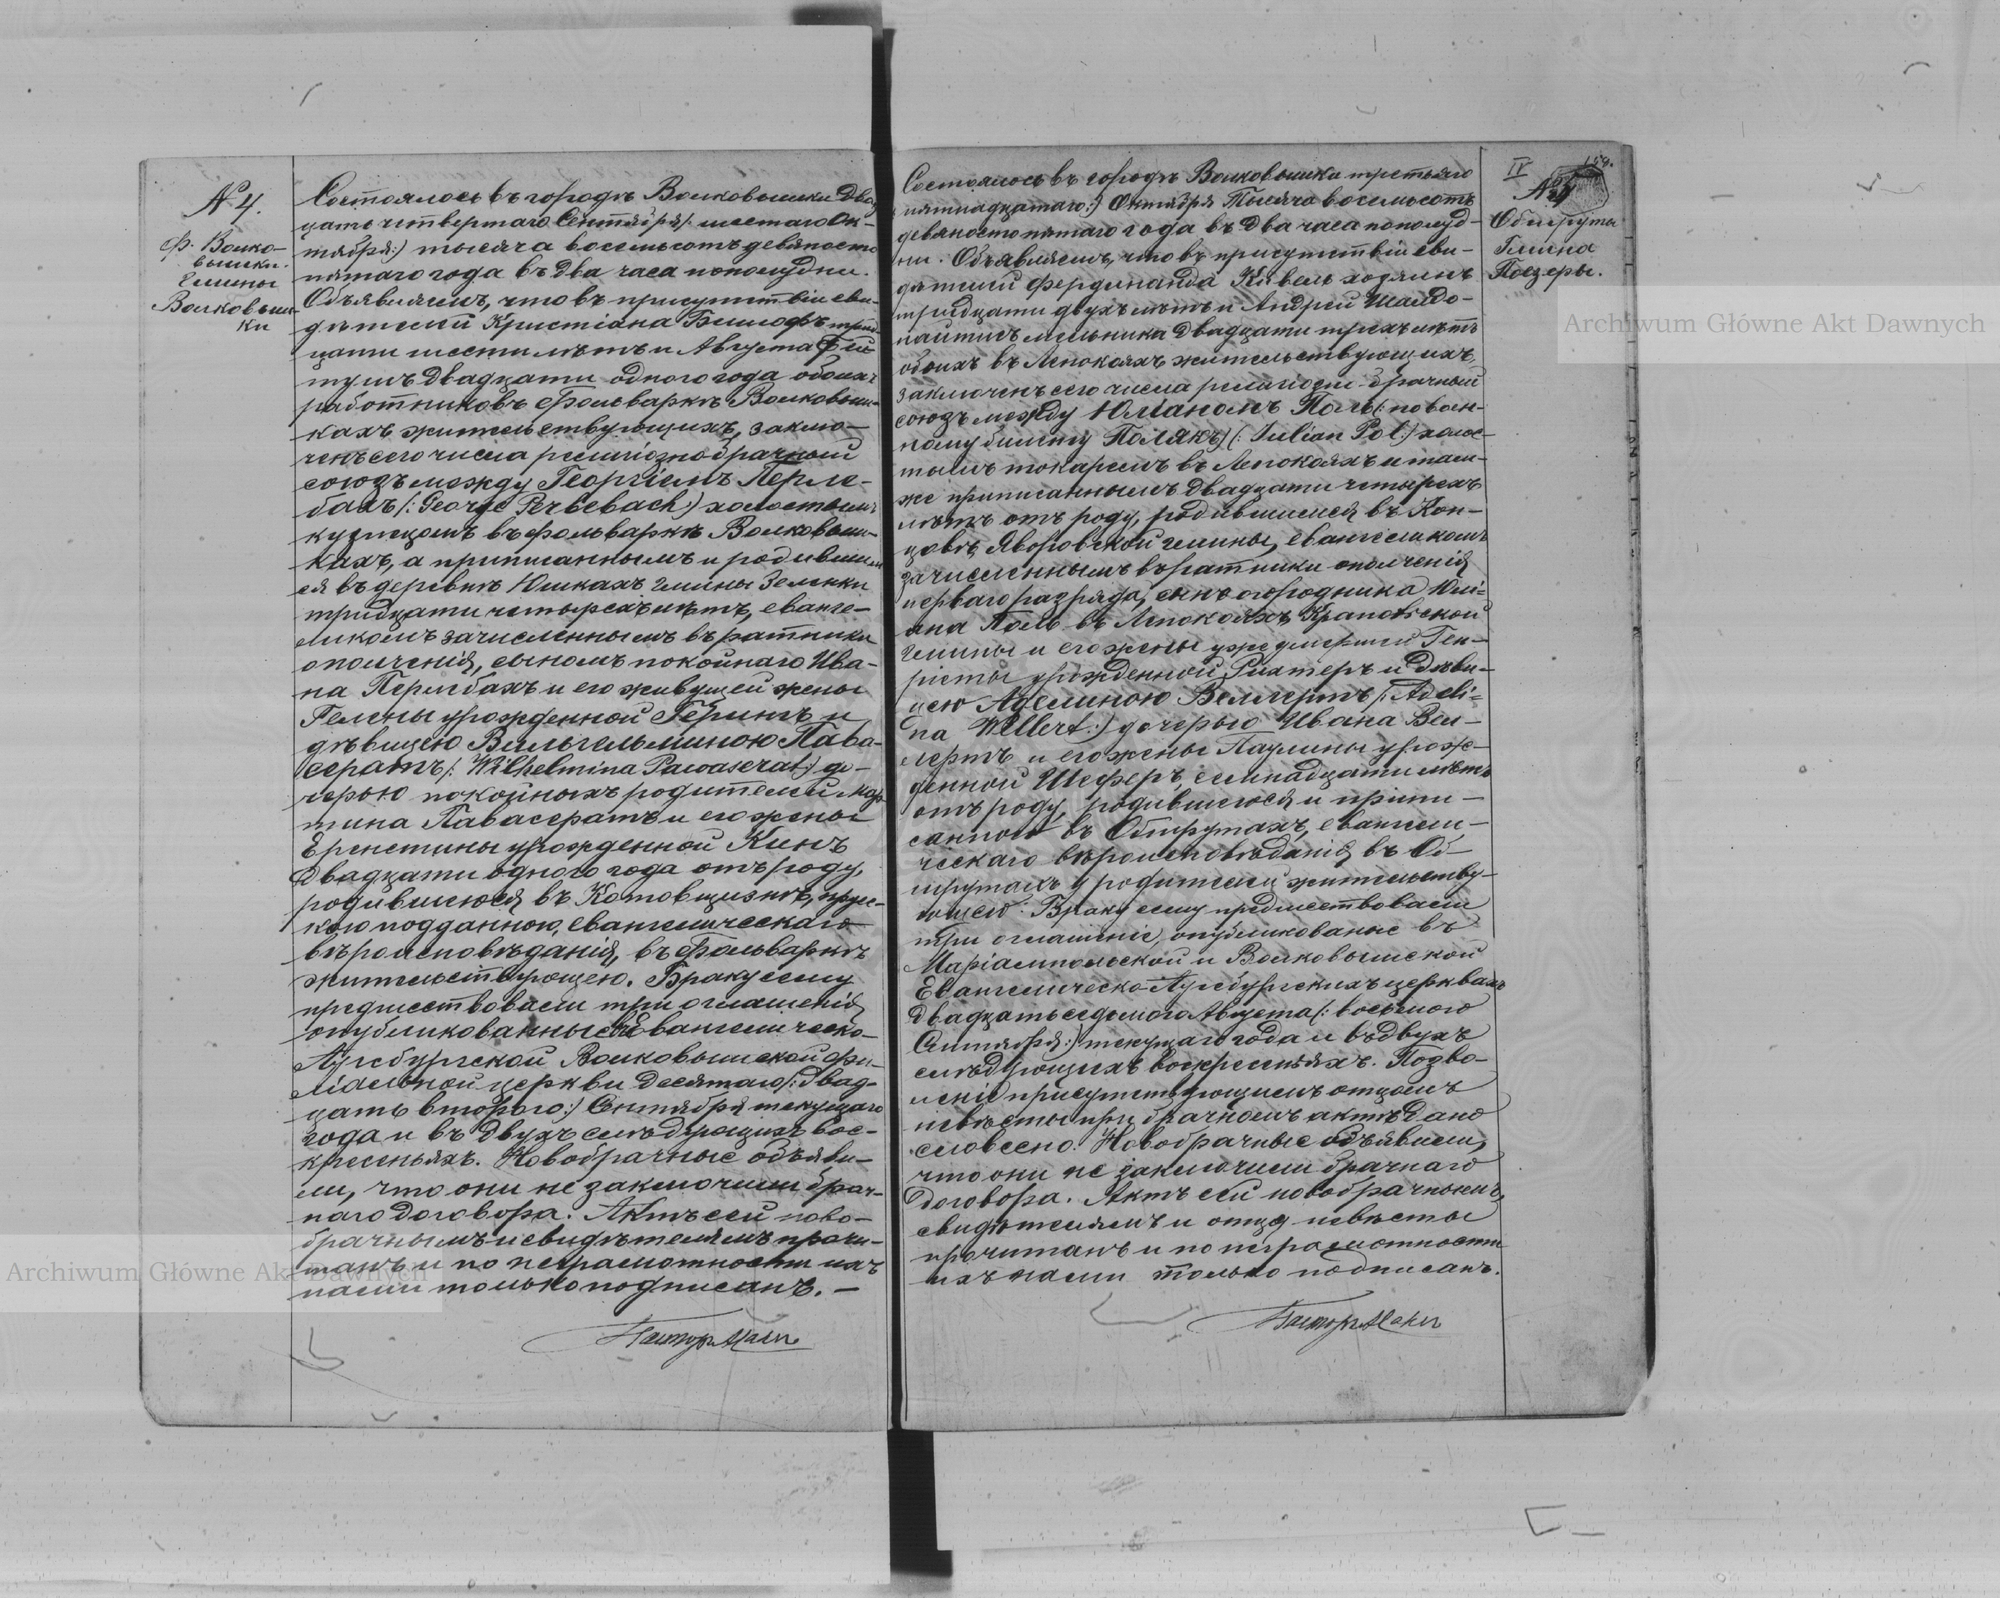 № 4.
Ф. Волко-
вышки.
Гмины
Волковыш-
ки
Состоялось въ городѣ Волковышки Двад-
цать четвертаго Сентября /: шестаго Ок-
тября :/ тысяча восемьсотъ девяносто
пятаго года въ два часа пополудни.
Объявляемъ, что въ присутствіи сви-
дѣтелей Кристіана трид-
цати шести лѣтъ и Августа
двадцати одного года обоихъ
работниковъ фольваркѣ Волковыш-
кахъ жительствующихъ, заклю-
ченъ сего числа религіознобрачный
союзъ между Георгіемъ Перле-
бахъ /: George Perlebach) холостымъ
кузнецомъ въ фольваркѣ Волковыш-
кахъ, а приписаннымъ и родившим
ся въ деревнѣ Юшкахъ гмины Зеленки
тридцати четырехъ лѣтъ, еванге-
ликомъ зачисленнымъ въ ратники
ополченія, сыномъ покойнаго Ива-
на Перлебахъ и его живущей жены
Гелены урожденной Герингъ и
дѣвицею Вильгельминою Пава-
сератъ /: Wilhelmina Pawaserat :/ до-
черью покойныхъ родителей Мар-
тина Павасератъ и его жены
Ернстины урожденной Кинъ
двадцати одного года отъ роду,
родившеюся въ Котовщизнѣ, прус-
кою подданною, евангелическаго
вѣроисповѣданія, въ фольваркѣ
жительствующею. Браку сему
предшествовали три оглашенія
опубликованные въ Евангелическо-
Аугсбургской Волковышской фи-
ліальной церкви десятаго /: двад-
цать втораго :/ Сентября текущаго
года и въ двухъ слѣдующихъ вос-
кресеньяхъ. Новобрачные объяви-
ли, что они не заключили брач-
наго договора. Актъ сей ново-
брачнымъ и свидѣтелямъ прочи-
танъ и по неграмотности ихъ
нами только подписанъ. —
Пасторъ
IV
№
Обшруты
Гмина
Поезеры.
Состоялось въ городѣ Волковышки третьяго
/: пятнадцатаго :/ Октября Тысяча восемьсотъ
девяносто пятаго года въ два часа пополуд-
ни. Объявляемъ, что въ присутствіи сви-
дѣтелей Фердинанда Кивель хозяинъ
тридцати двухъ лѣтъ и Андрей Шалдо-
найтисъ мельника двадцати трехъ лѣтъ
обоихъ въ Лепокояхъ жительствующихъ
заключенъ сего числа религіозно-брачный
союзъ между Юліаномъ Поль (: по воен-
ному билету Полякъ) (: Julian Pol :/ холос-
тымъ токаремъ въ Лепокояхъ и там-
же приписаннымъ двадцати четырехъ
лѣтъ отъ роду, родившимся въ Кон-
цовѣ, Яворовской гмины, евангеликомъ
зачисленнымъ въ ратники ополченія
перваго разряда, сынъ огородника Юлі-
ана Поль въ Лепокояхъ,
гмины и его жены уже умершей Ген-
рiеты урожденной Рихтеръ и дѣви-
цею Аделиною Веллертъ /: Adeli-
na Wellert :/ дочерью Ивана Вел-
лертъ и его жены Паулины урож-
денной Шеферъ, семнадцати лѣтъ
отъ роду, родившеюся и припи-
санною въ Обшрутахъ, евангели-
ческаго вѣроисповѣданія, въ Об-
шрутахъ у родителей жительству-
ющею. Браку сему предшествовали
три оглашенiе, опубликованые въ
Маріампольской и Волковышской
Евангелическо-Аугсбургскихъ церквахъ
Двадцать седьмого Августа /: восьмого
Сентября :/ текущаго года и въ двухъ
слѣдующихъ воскресеньяхъ. Позво-
ленiе присутствующимъ отцомъ
невѣсты при брачномъ актѣ дано
словесно. Новобрачные объявили,
что они не заключили брачнаго
договора. Актъ сей новобрачнымъ,
свидѣтелямъ и отцу невѣсты
прочитанъ и по неграмотности
ихъ нами только подписанъ.
Пасторъ
Archiwum Główne Akt Dawnych
Archiwum Główne Akt Dawnych